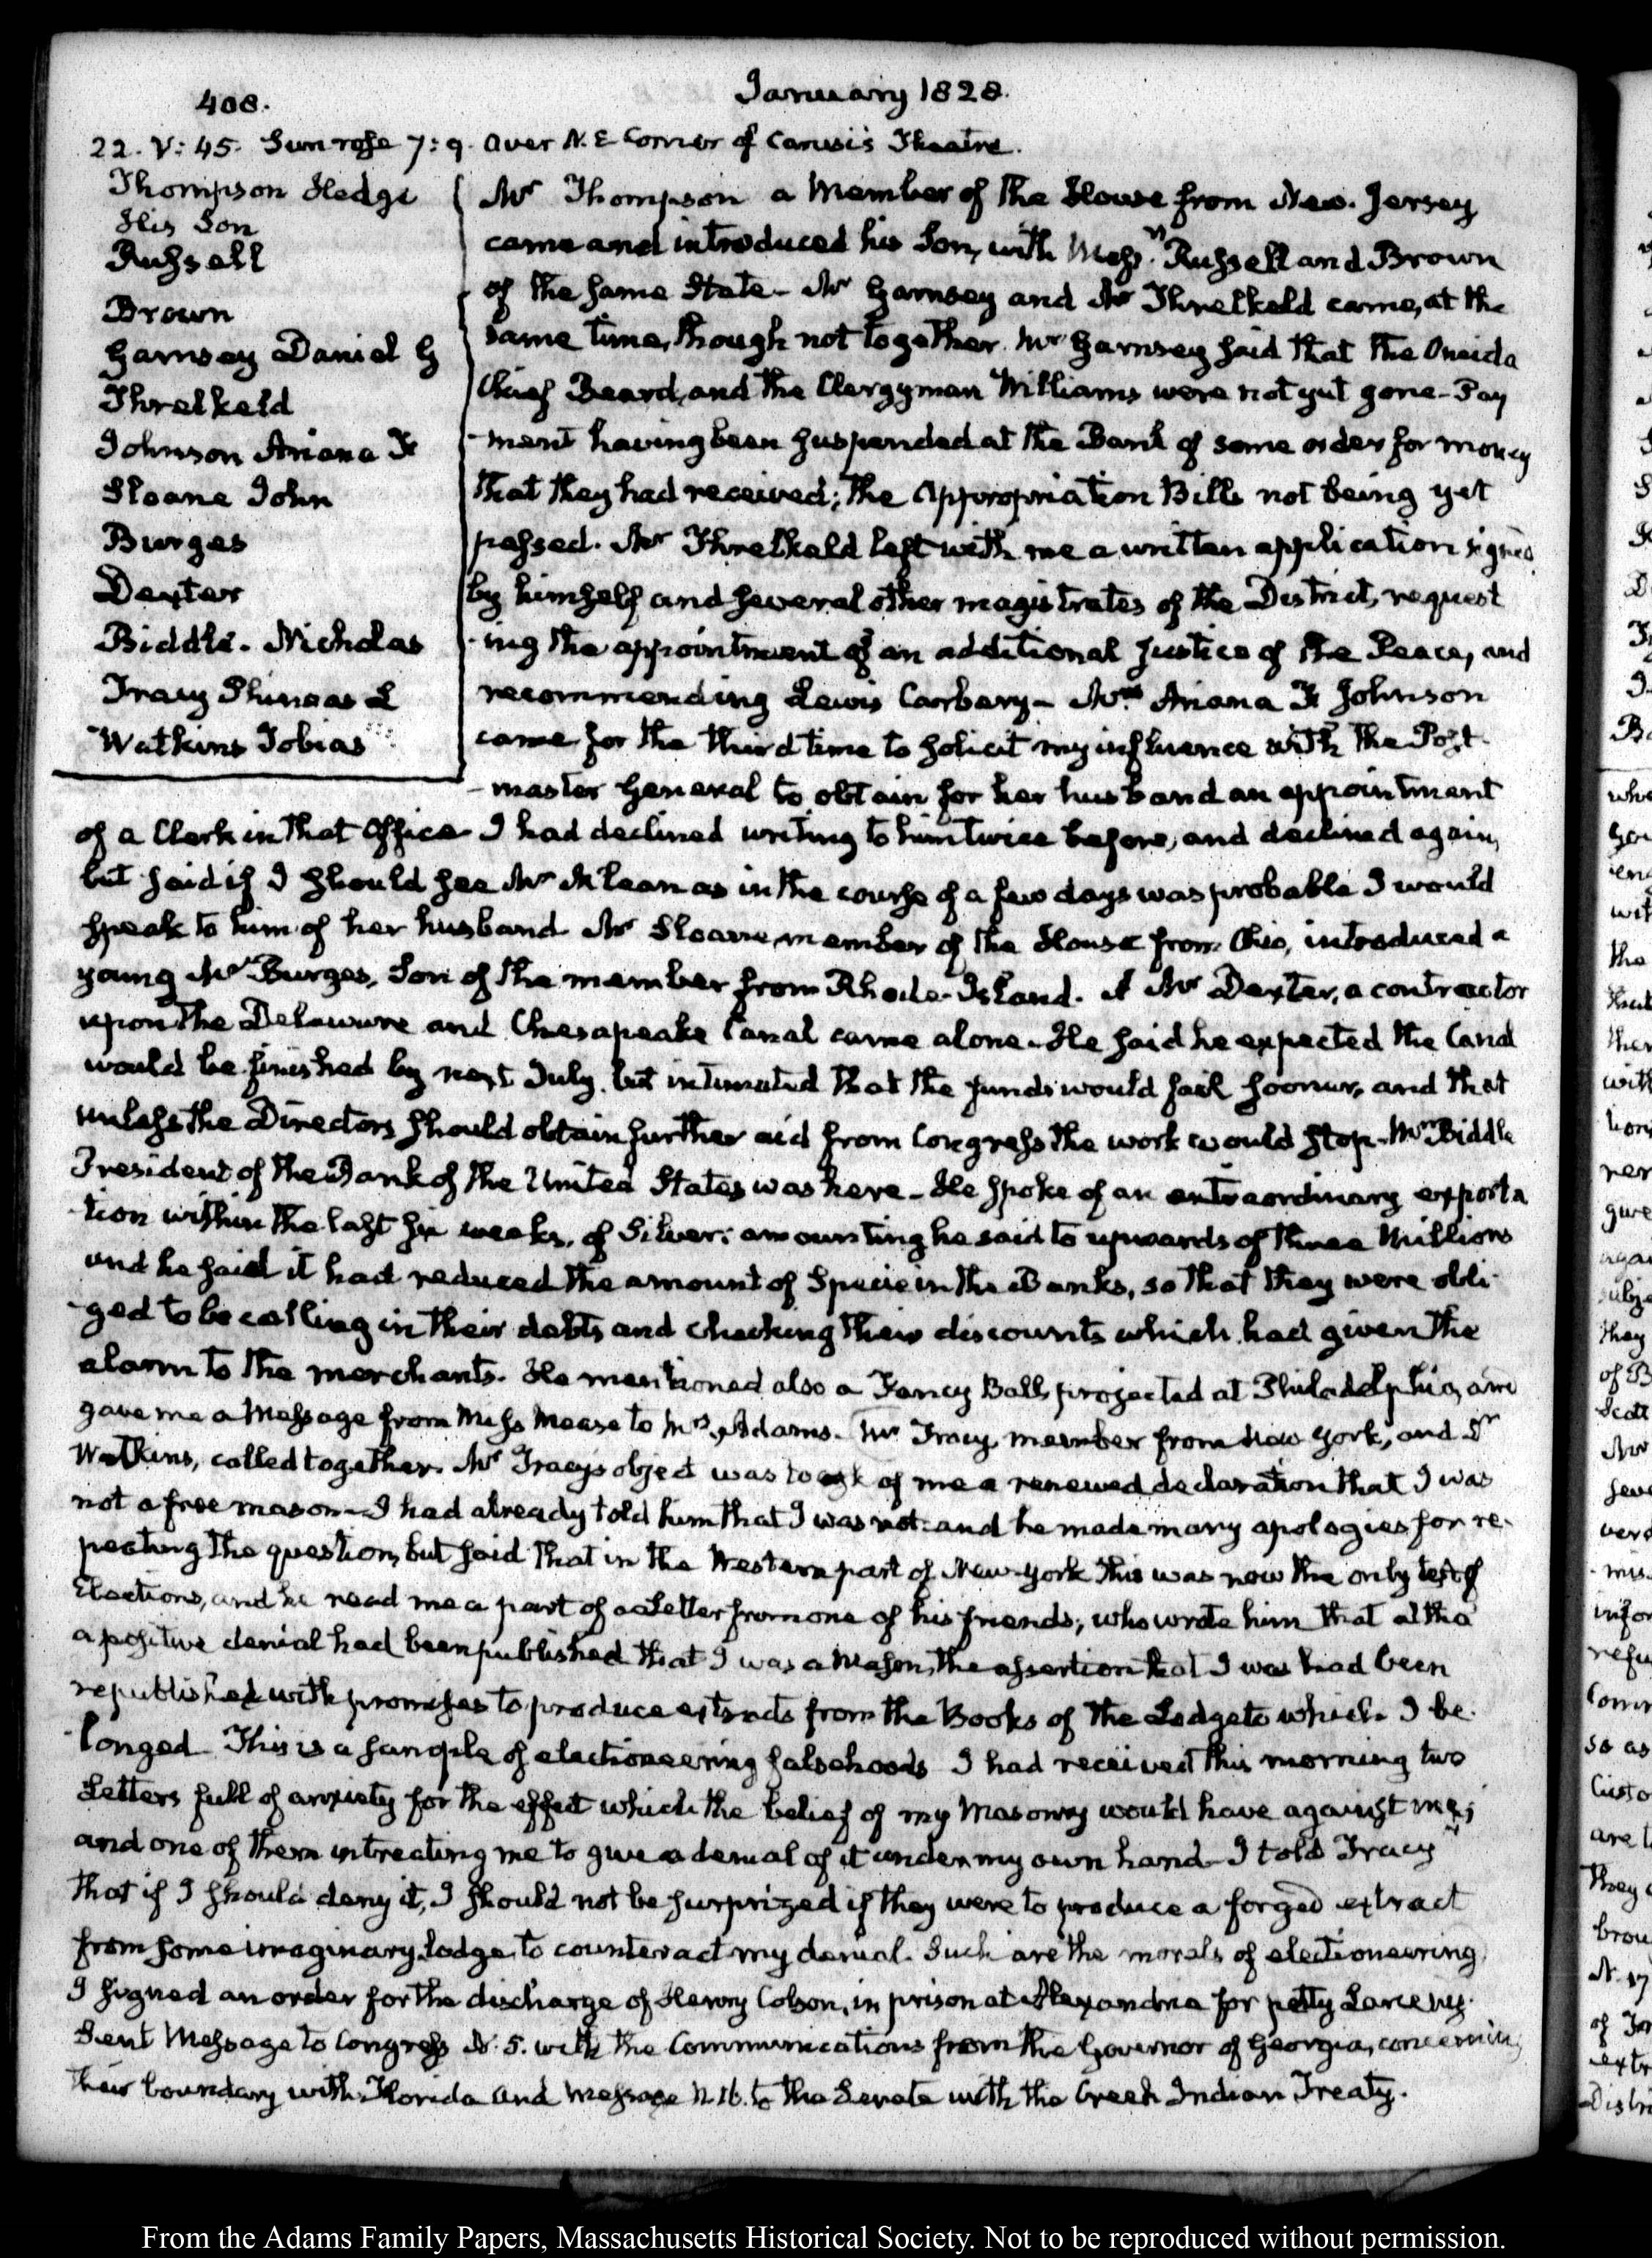 408.
January 1828.
22. V: 45. Sun rose 7: 9. over N. E Corner of Carusi's Theatre.
Thompson Hedge
His Son
Russell
Brown
Garnsey Daniel G
Threlkeld
Johnson Ariana F
Sloane John
Burges
Dexter
Biddle. Nicholas
Tracy Phineas L
Watkins Tobias
Mr Thompson a Member of the House from New-Jersey
came and introduced his Son, with Messrs. Russell and Brown
of the same State- Mr Garnsey and Mr Threlkeld came, at the
same time, though not together. Mr Garnsey said that the Oneida
Chief Beard, and the Clergyman Williams were not yet gone- Pay
-ment having been suspended at the Bank of some order for money
that they had received; the Appropriation Bills not being yet
passed. Mr Threlkeld left with me a written application signed
by himself and several other magistrates of the District, request
-ing the appointment of an additional Justice of the Peace, and
recommending Lewis Carbery- Mrs Ariana F Johnson
came for the third time to solicit my influence with the Post-
-master General to obtain for her husband an appointment
of a Clerk in that Office I had declined writing to him twice before, and declined again,
but said if I should see Mr McLean as in the course of a few days was probable I would
speak to him of her husband Mr Sloane, member of the House from Ohio, introduced a
young Mr Burges, Son of the member from Rhode-Island. A Mr Dexter, a contractor
upon the Delaware and Chesapeake Canal came alone. He said he expected the Canal
would be finished by next July, but intimated that the funds would fail sooner, and that
unless the Directors should obtain further aid from Congress the work would stop- Mr Biddle
President of the Bank of the United States was here- He spoke of an extraordinary exporta
-tion within the last six weeks, of Silver: amounting he said to upwards of three Millions
and he said it had reduced the amount of Specie in the Banks, so that they were obli-
-ged to be calling in their debts and checking their discounts which had given the
alarm to the merchants. He mentioned also a Fancy Ball, projected at Philadelphia, and
gave me a Message from Miss Mease to Mrs. Adams. Mr Tracy member from New York, and Dr
Watkins, called together. Mr Tracy's object was to ask of me a renewed declaration that I was
not a free mason- I had already told him that I was not: and he made many apologies for re-
peating the question, but said that in the Western part of New-York this was now the only test of
Elections, and he read me a part of a Letter from one of his friends, who wrote him that altho'
a positive denial had been published that I was a Mason, the assertion that I was had been
republished with promises to produce extracts from the Books of the Lodge to which I be-
-longed This is a sample of electioneering falsehoods I had received this morning two
Letters full of anxiety for the effect which the belief of my Masonry would have against me;
and one of them intreating me to give a denial of it under my own hand- I told Tracy
that if I should deny it, I should not be surprized if they were to produce a forged extract
from some imaginary lodge, to counteract my denial. Such are the morals of electioneering.
I signed an order for the discharge of Henry Cobson, in prison at Alexandria for petty Larceny.
Sent Message to Congress N. 5. with the Communications from the Governor of Georgia, concerning
their boundary with Florida and Message N. 16. to the Senate with the Creek Indian Treaty.
From the Adams Family Papers, Massachusetts Historical Society. Not to be reproduced without permission.